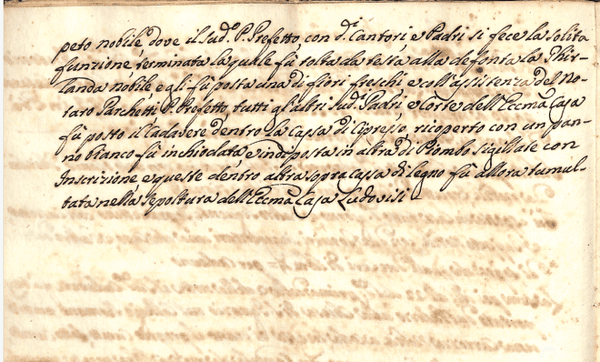 peto nobile dove il Sud.º P. Prefetto con d.i Cantori e Padri si fece la solita
funzione terminata la quale fù tolta da testa alla defonta la Ghir-
landa nobile e gli fù posta una di fiori freschi e coll'assistenza del No-
taro Parchetti P. Prefetto tutti gl'altri Sud.i Padri e Corte dell'Eccma Casa
fù posto il Cadavere dentro la cassa di Cipresso, ricoperto con un pan-
no bianco fù inchiodata e indi posta in altra di Piombo sigillate con
Inscrizione e queste dentro altra sopracassa di legno fù allora tumul-
tata nella sepoltura dell'Eccma Casa Ludovisi